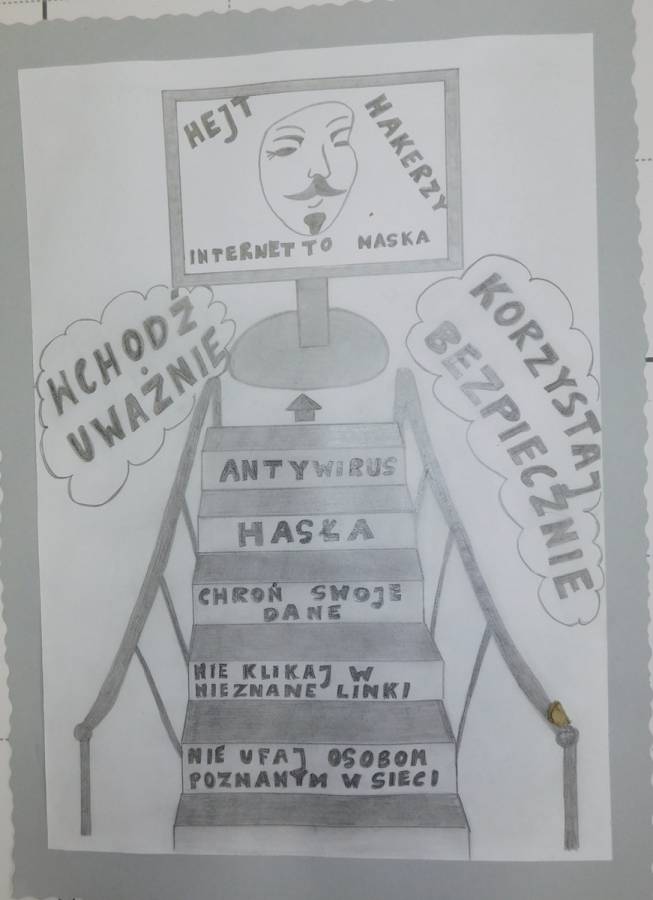 HEJT
HAKERZY
INTERNET TO MASKA
WCHODŹ
UWAŻNIE
KORZYSTAJ
BEZPIECZNIE
ANTYWIRUS
HASŁA
CHROŃ SWOJE
DANE
NIE KLIKAJ W
NIEZNANE LINKI
NIE UFAJ OSOBOM
POZNANYM W SIECI